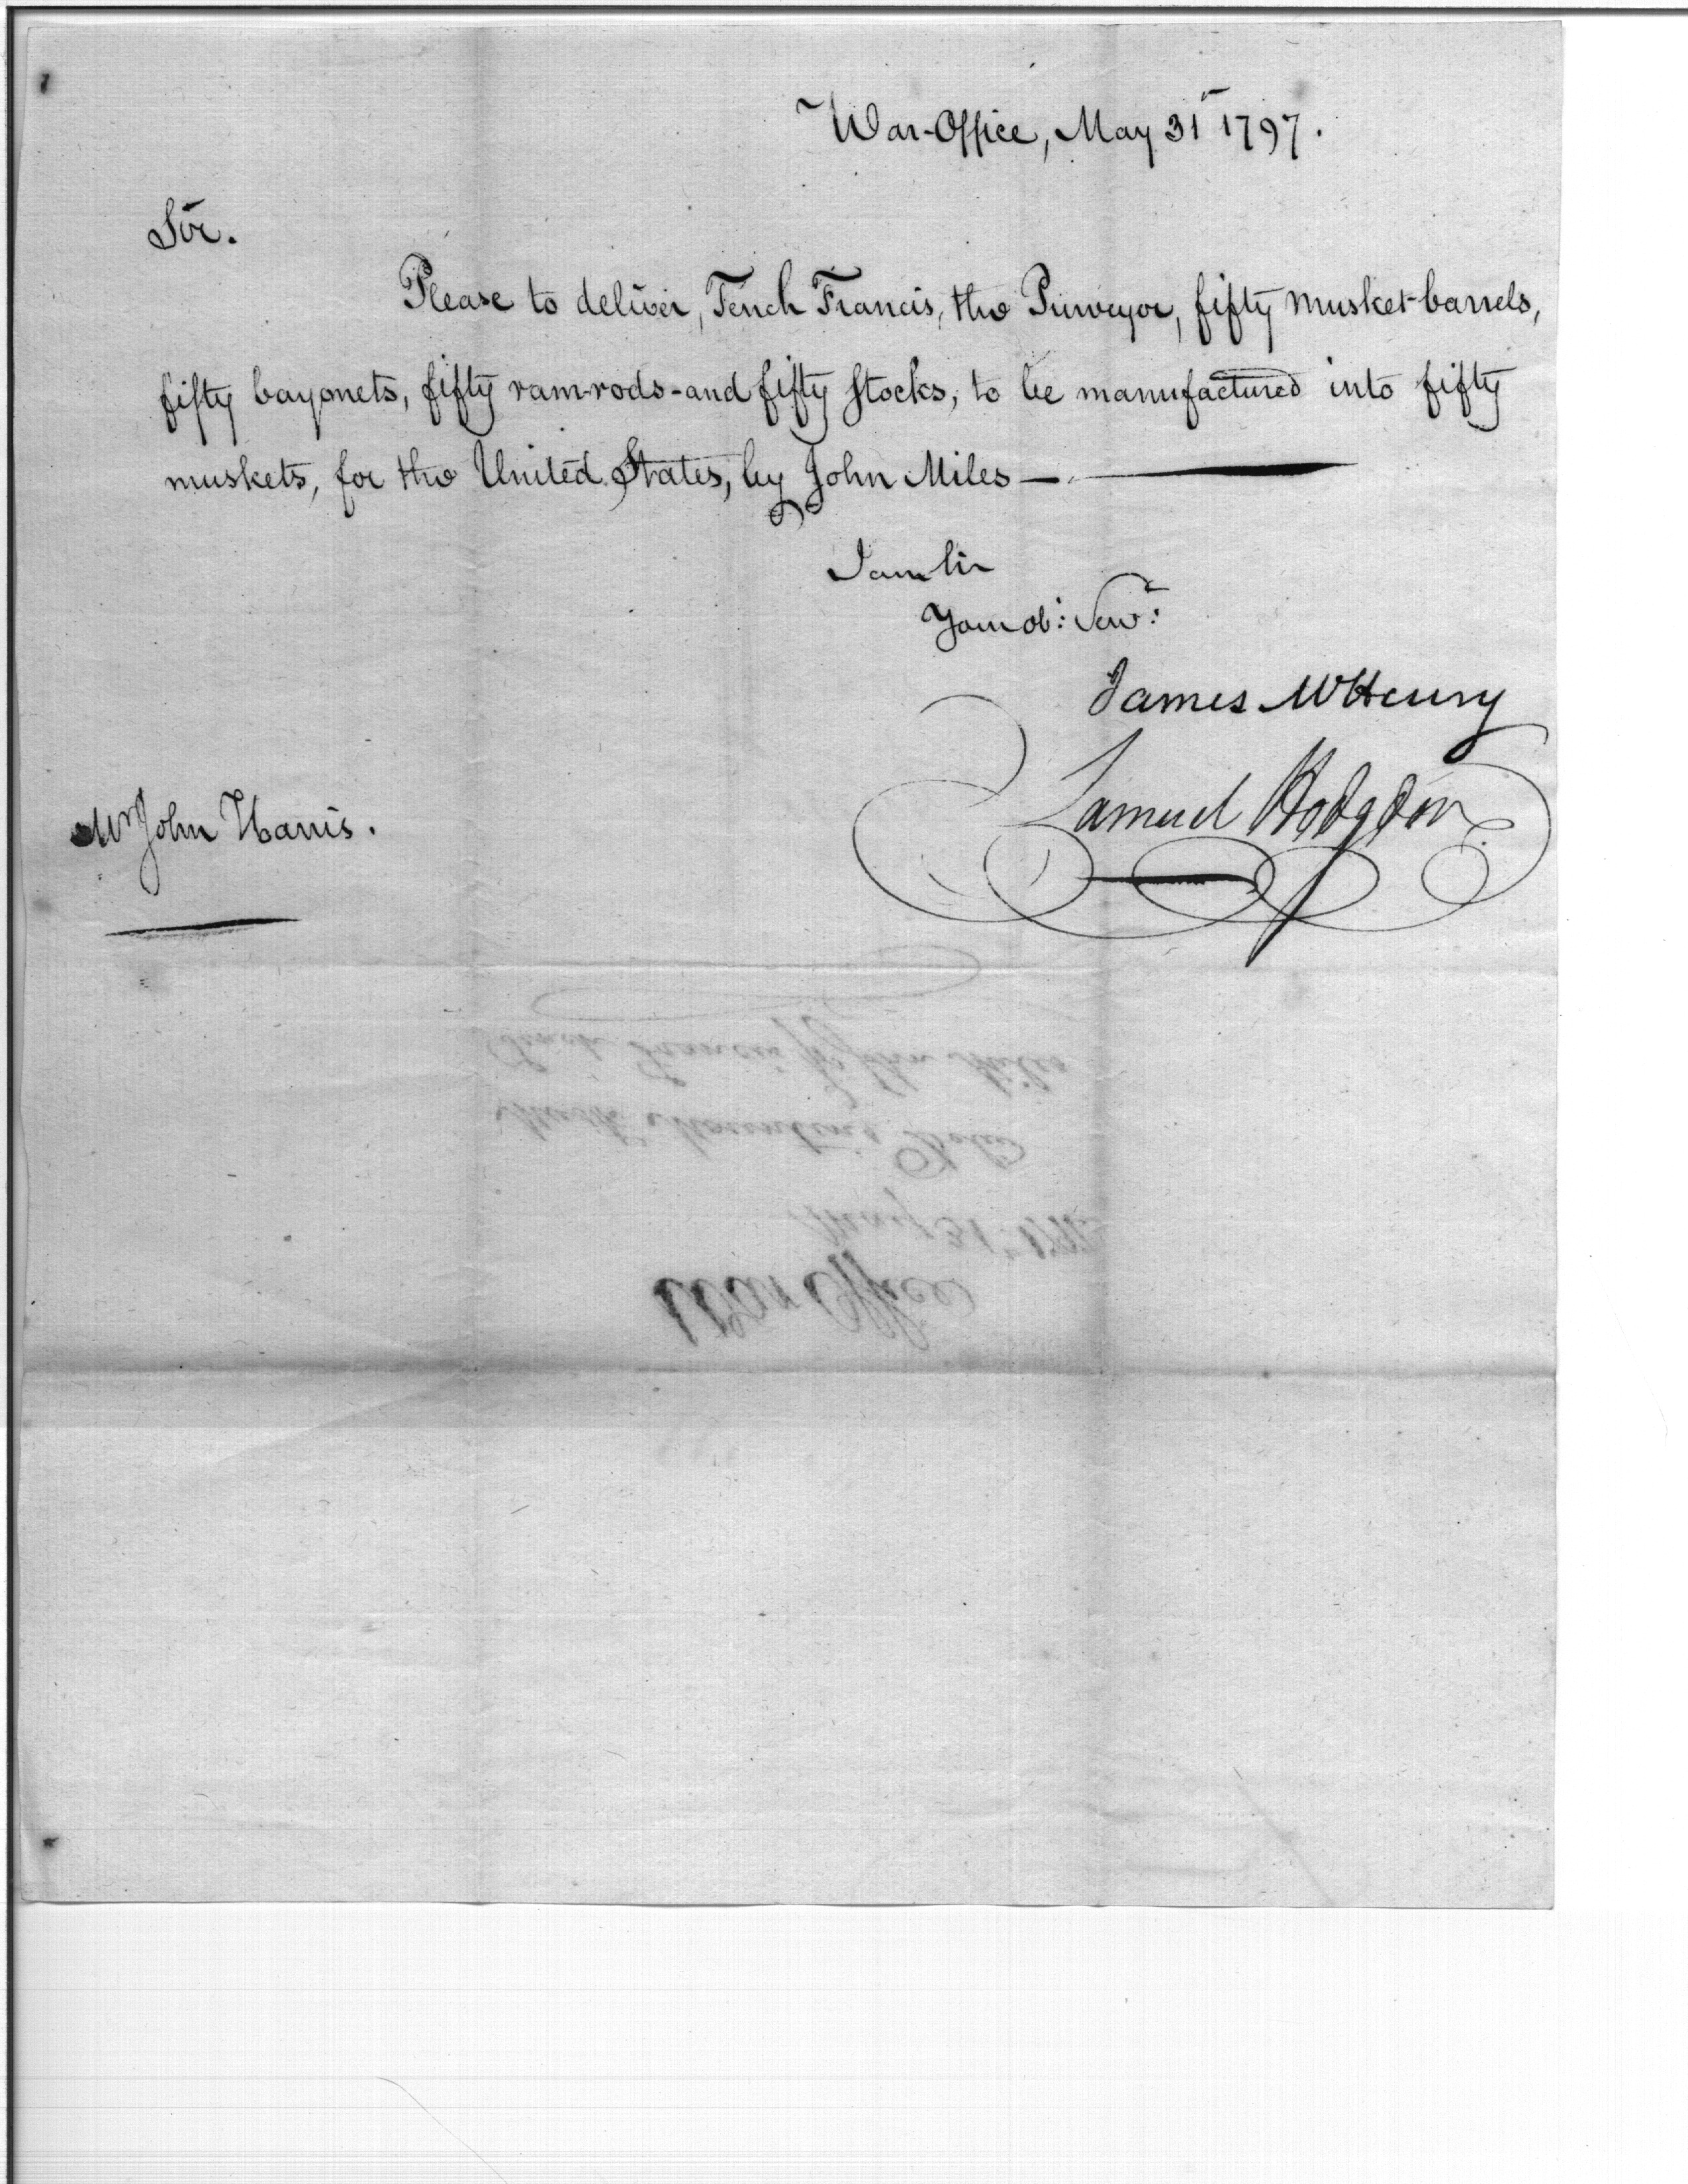 War-Office, May 31 1797.
Sir.
Please to deliver, Tench Francis, the Purveyor, fifty musket-barrels,
fifty bayonets, fifty ram-rods-and fifty stocks, to be manufactured into fifty
muskets, for the United States, by John Miles —
I am Sir
Your ob: Serv:
James McHenry
Samuel Hodgdon
Mr John Harris.
Tench Francis John Miles
May 31 1797
War Office